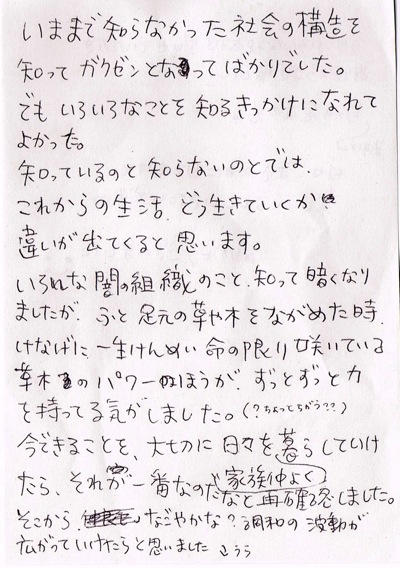 いままで知らなかった社会の構造を
知ってガクゼンとなってばかりでした。
でもいろいろなことを知るきっかけになれて
よかった。
知っているのと知らないのとでは、
これからの生活、どう生きていくか
違いが出てくると思います。
いろんな闇の組織のこと、知って暗くなり
ましたが、ふと足元の草や木をながめた時、
けなげに、一生けんめい命の限り咲いている
草木のパワーのほうが、ずっとずっと力
を持ってる気がしました。(?ちょっとちがう??)
今できることを、大切に日々を暮らしていけ
たら、それが一番なのだなと再確認しました。
家族仲よく
そこから なごやかな?調和の波動が
広がっていけたらと思いました